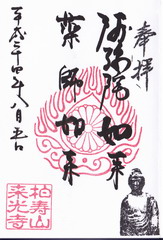 奉拝
阿弥陀如来
薬師如来
平成二十四年八月五日
柏寿山
来光寺